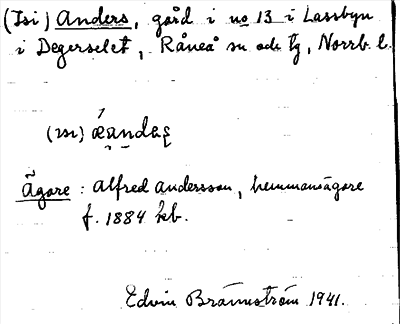 (Isi) Anders, gård i no 13 i Lassbyn
i Degerselet, Råneå sn och tg, Norrb. l.
Ägare: Alfred Andersson, hemmansägare
f. 1884 hb.
Edvin Brännström 1941.